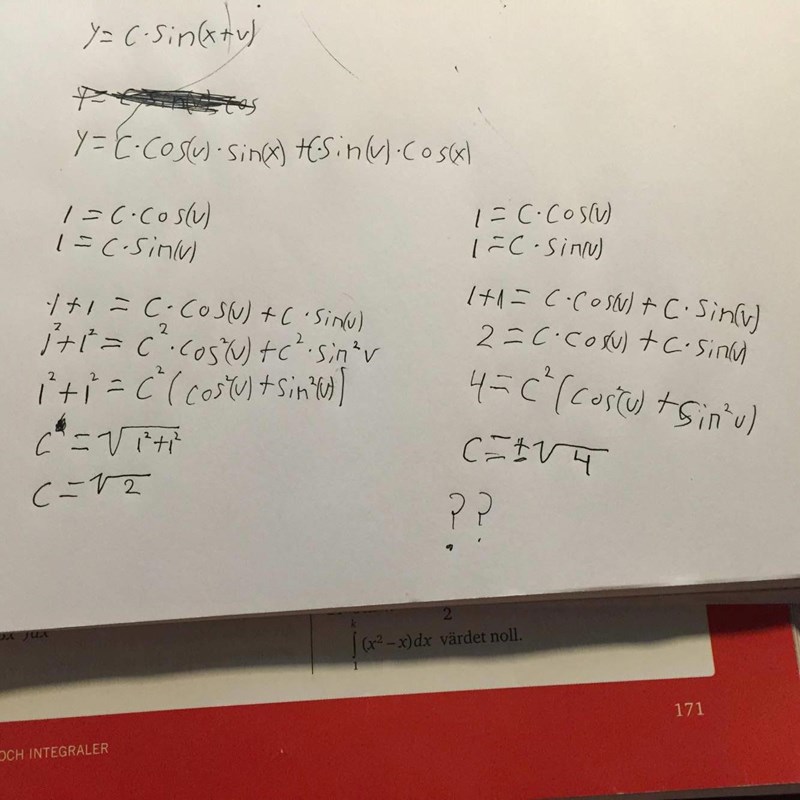 y = C·sin(x+v)
y = C·cos(v)·sin(x) + C·sin(v)·cos(x)
1 = C·cos(v)
1 = C·sin(v)
1+1 = C·cos(v) + C·sin(v)
1²+1² = C²·cos²(v) + C²·sin²v
1²+1² = C²(cos²(v) + sin²(v))
C = √1²+1²
C = √2
1 = C·cos(v)
1 = C·sin(v)
1+1 = C·cos(v) + C·sin(v)
2 = C·cos(v) + C·sin(v)
4 = C²(cos²(v) + sin²v)
C = ±√4
??
2
∫₁ᵏ (x² – x)dx värdet noll.
171
OCH INTEGRALER